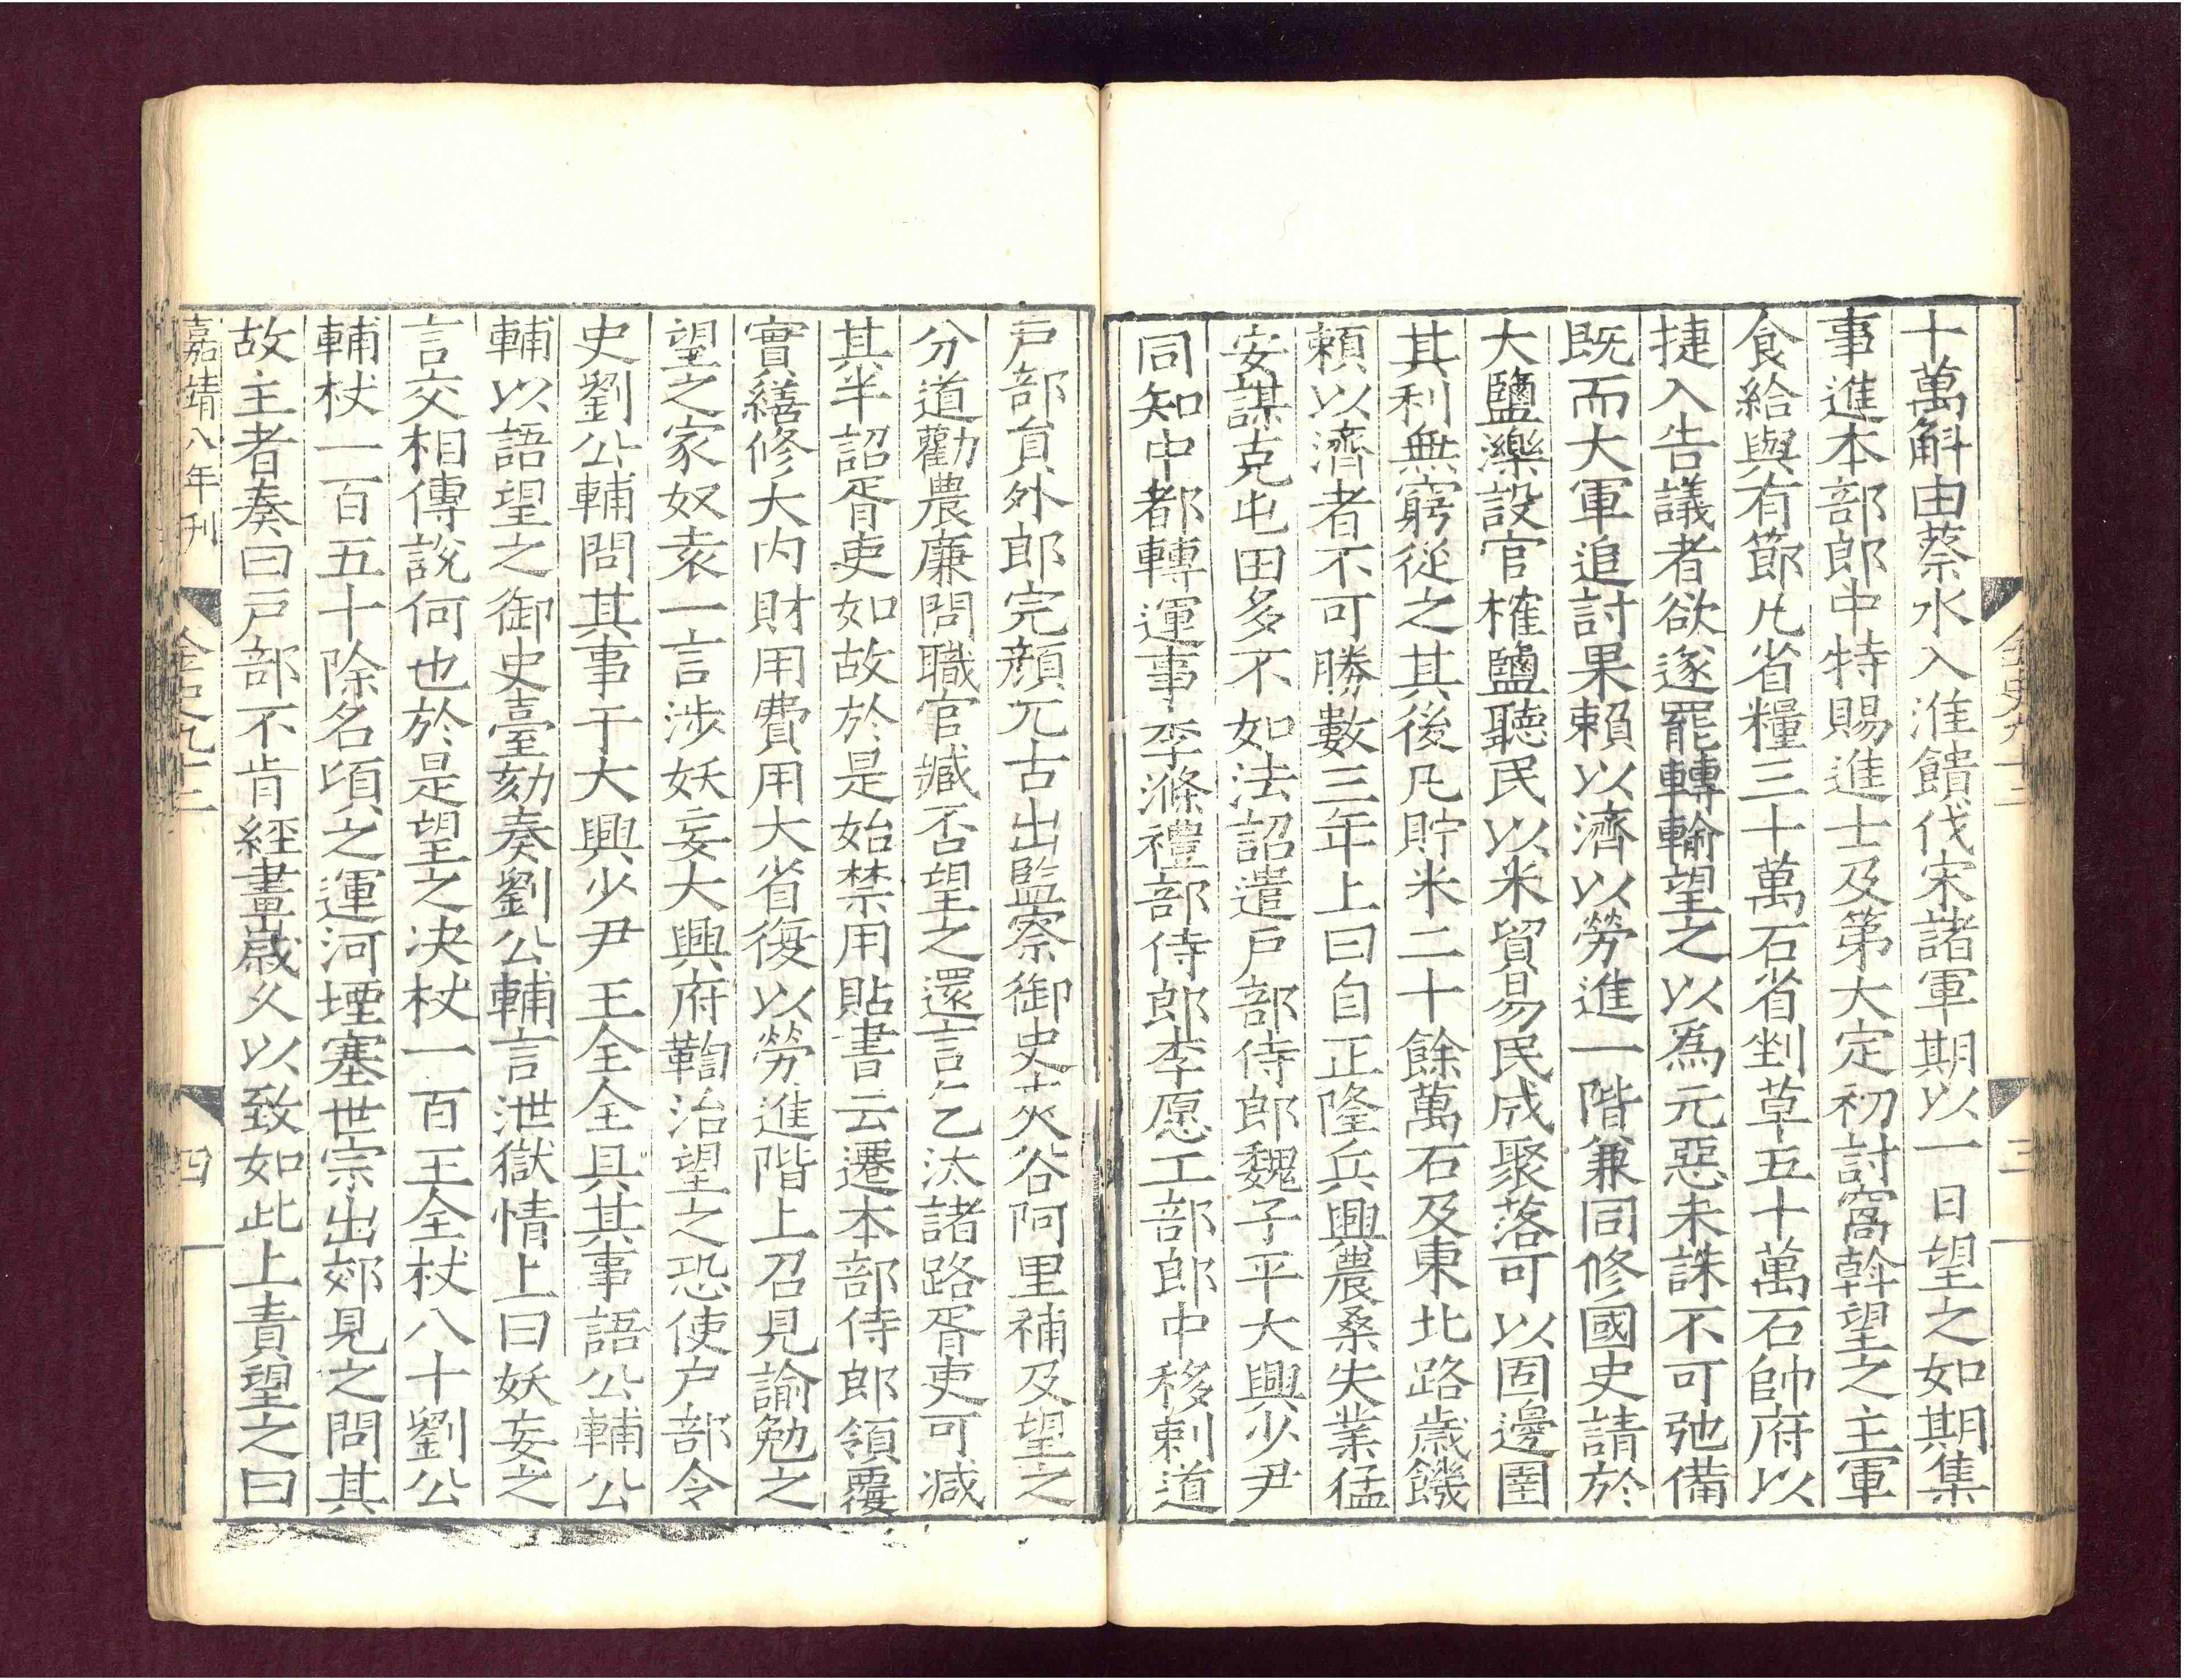 金史九十三
三
十萬斛由蔡水入淮饋伐宋諸軍期以一日望之如期集
事進本部郎中特賜進士及第大定初討窩斡望之主軍
食給與有節凡省糧三十萬石省剉草五十萬石帥府以
捷入告議者欲遂罷轉輸望之以為元惡未誅不可弛備
既而大軍追討果賴以濟以勞進一階兼同修國史請於
大鹽濼設官榷鹽聽民以米貿易民成聚落可以固邊圉
其利無窮從之其後凡貯米二十餘萬石及東北路歲饑
賴以濟者不可勝數三年上曰自正隆兵興農桑失業猛
安謀克屯田多不如法詔遣戶部侍郎魏子平大興少尹
同知中都轉運事李滌禮部侍郎李愿工部郎中移剌道
戶部員外郎完顏兀古出監察御史夾谷阿里補及望之
分道勸農廉問職官臧否望之還言乞汰諸路胥吏可減
其半詔胥吏如故於是始禁用貼書云遷本部侍郎領覆
實繕修大內財用費用大省復以勞進階上召見諭勉之
望之家奴袁一言涉妖妄大興府鞫治望之恐使戶部令
史劉公輔問其事于大興少尹王全全具其事語公輔公
輔以語望之御史臺劾奏劉公輔言泄獄情上曰妖妄之
言交相傳說何也於是望之決杖一百王全杖八十劉公
輔杖一百五十除名頃之運河堙塞世宗出郊見之問其
故主者奏曰戶部不肯經畫歲久以致如此上責望之曰
嘉靖八年刊
金史九十三
四